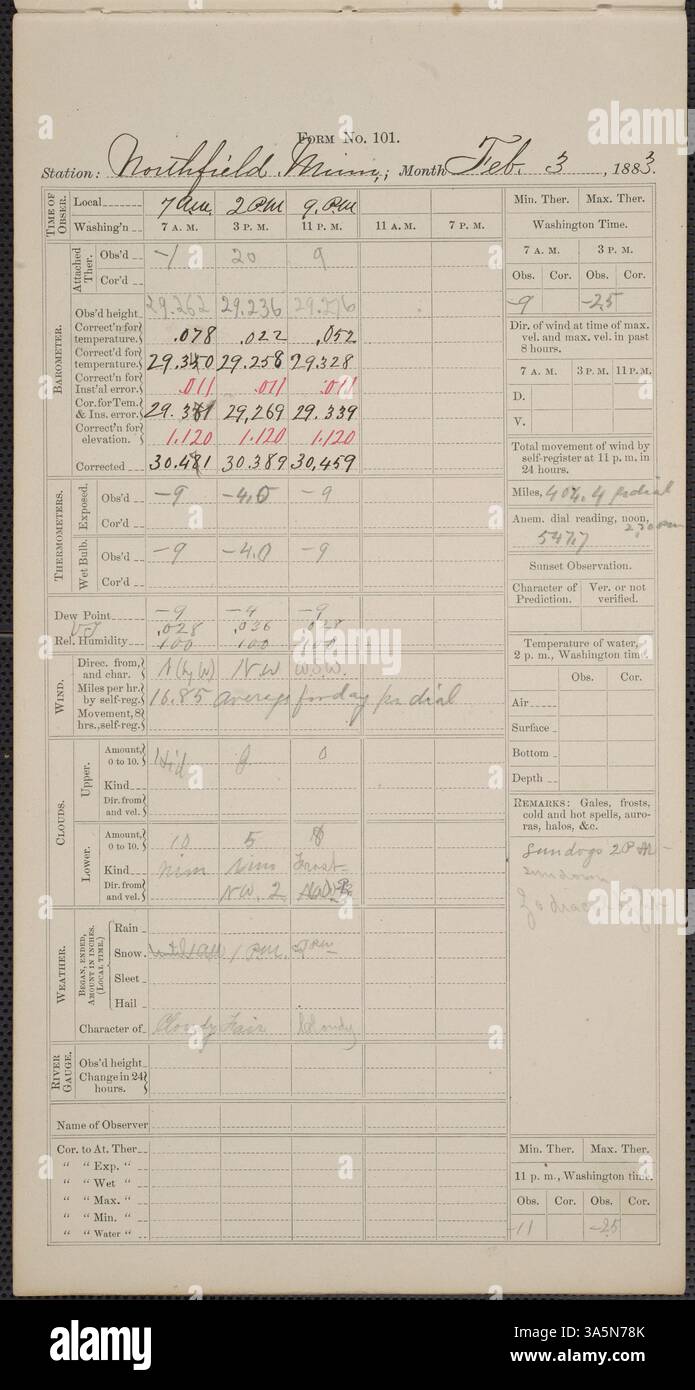 FORM No. 101.
Station: Northfield, Minn.; Month Feb. 3, 1883.
TIME OF OBSER.
Local 7 a.m. 2 P.M 9. P.M
Washing'n 7 A. M. 3 P. M. 11 P. M. 11 A. M. 7 P. M.
BAROMETER.
Attached Ther.
Obs'd -1 20 9
Cor'd
Obs'd height 29.262 29.236 29.276
Correct'n for temperature. .078 .022 .052
Correct'd for temperature. 29.350 29.258 29.328
Correct'n for Inst'al error. .011 .011 .011
Cor. for Tem. & Ins. error. 29,269 29.339
Correct'n for elevation. 1.120 1.120 1.120
Corrected 30.389 30,459
THERMOMETERS.
Exposed.
Obs'd -9 -4.0 -9
Cor'd
Wet Bulb.
Obs'd -9 -4.0 -9
Cor'd
Dew Point -9 -4 -9
.028 .036 .028
Rel. Humidity 100 100 100
WIND.
Direc. from, and char. N (by W) NW W.S.W.
Miles per hr. by self-reg. 16.85 average for day per dial
Movement, 8 hrs., self-reg.
CLOUDS.
Upper.
Amount, 0 to 10. Hid 0
Kind
Dir. from and vel.
Lower.
Amount, 0 to 10. 10 5
Kind Nim Frost
Dir. from and vel. NW. 2
WEATHER.
BEGAN, ENDED, AMOUNT IN INCHES. (LOCAL TIME.)
Rain
Snow 1 P.M.
Sleet
Hail
Character of Cloudy Fair Cloudy
RIVER GAUGE.
Obs'd height
Change in 24 hours.
Name of Observer
Cor. to At. Ther
" " Exp. "
" " Wet "
" " Max. "
" " Min. "
" " Water "
Min. Ther. Max. Ther.
Washington Time.
7 A. M. 3 P. M.
Obs. Cor. Obs. Cor.
-9 -25
Dir. of wind at time of max. vel. and max. vel. in past 8 hours.
7 A. M. 3 P. M. 11 P. M.
D.
V.
Total movement of wind by self-register at 11 p. m. in 24 hours.
Miles, 404.4 pr dial
Anem. dial reading, noon, 2:30 pm
547.7
Sunset Observation.
Character of Prediction. Ver. or not verified.
Temperature of water, 2 p. m., Washington time.
Obs. Cor.
Air
Surface
Bottom
Depth
REMARKS: Gales, frosts, cold and hot spells, auroras, halos, &c.
Sundogs 2 P.M -
sundown
Min. Ther. Max. Ther.
11 p. m., Washington time.
Obs. Cor. Obs. Cor.
-11 -25
alamy
Image ID: 3A5N78K
www.alamy.com